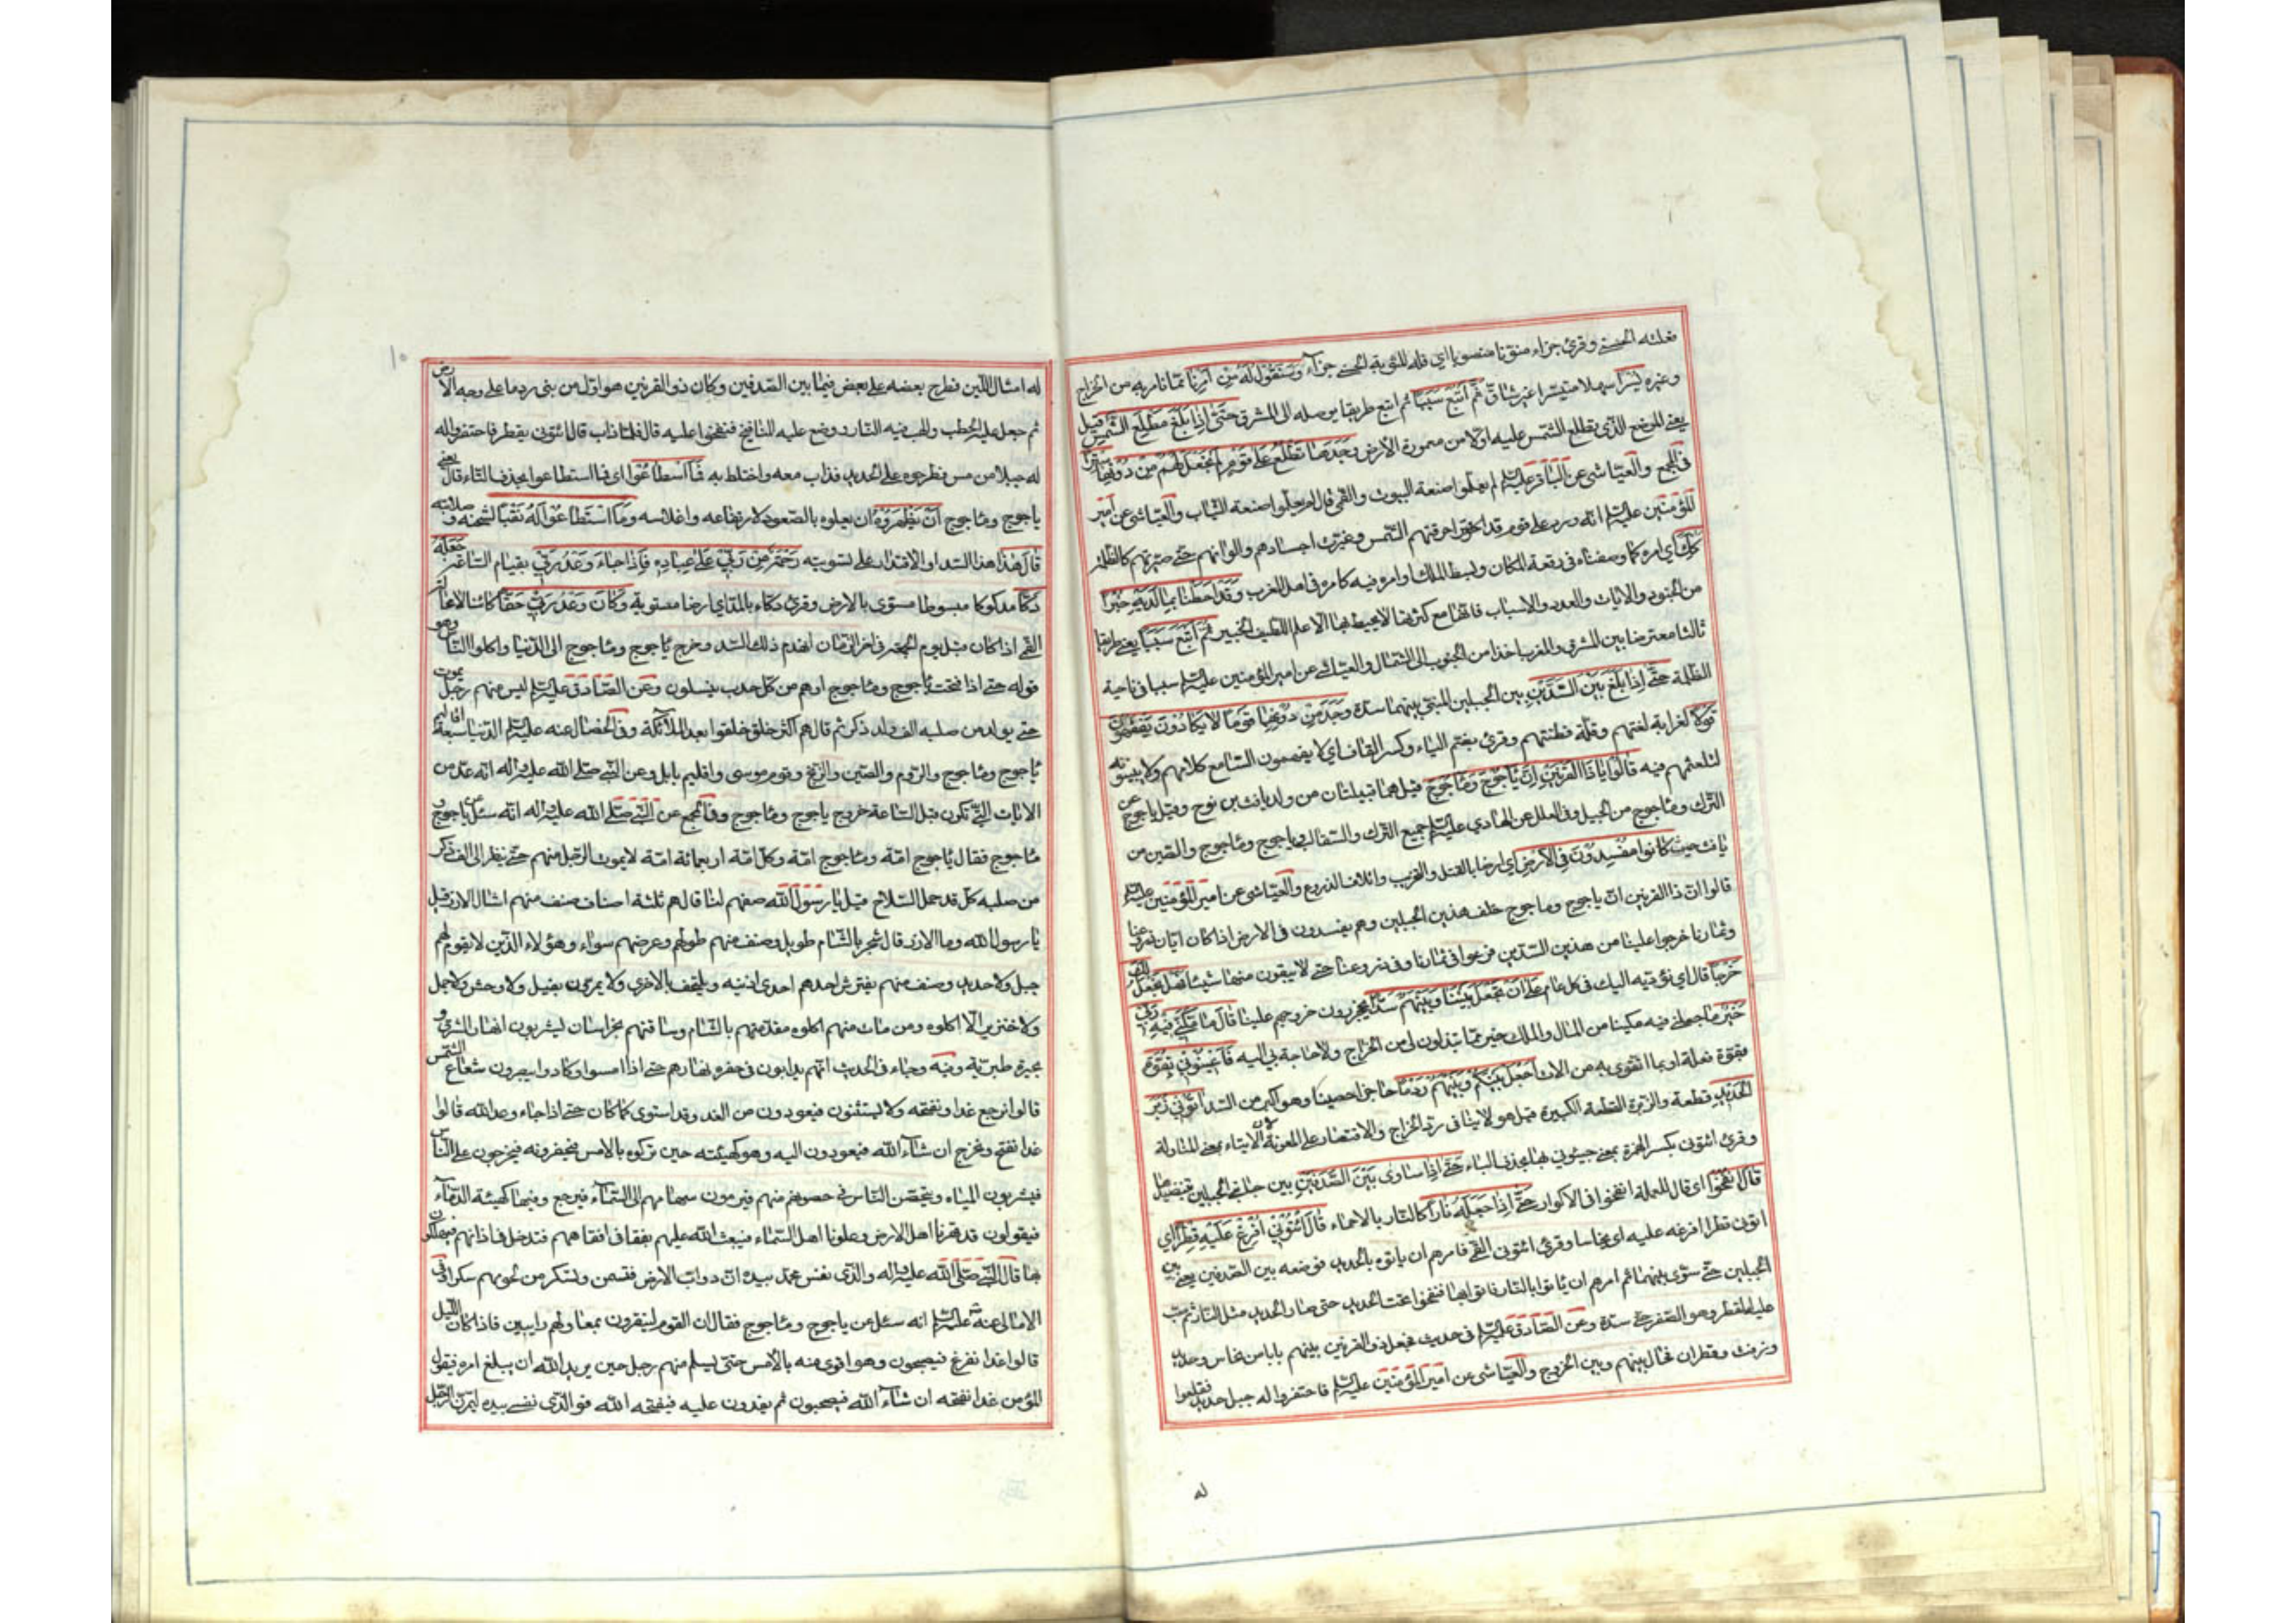 فعلته الحسنى وقرئ جزاء منوّنا منصوبا اي فله المثوبة الحسنى جزآء وَسَنَقُولُ لَهُ مِنْ اَمْرِنَا ممّا نامر به من الخراج
وغيره يُسْراً سهلا متيسّرا غير شاقّ ثُمَّ اَتْبَعَ سَبَباً ثم اتبع طريقا يوصله الى المشرق حَتّٰى اِذَا بَلَغَ مَطْلِعَ الشَّمْسِ قيل
يعنى الموضع الّذى يطلع الشمس عليه اوّلا من معمورة الارض وَجَدَهَا تَطْلُعُ عَلٰى قَوْمٍ لَمْ نَجْعَلْ لَهُمْ مِنْ دُونِهَا سِتْراً
فى المجمع والعيّاشى عن الباقر عليه السلم لم يعلموا صنعة البيوت والقمى قال لم يعلموا صنعة الثياب والعيّاشى عن امير
المؤمنين عليه السلم انّه ورد على قوم قد احرقتهم الشمس وغيّرت اجسادهم والوانهم حتى صيّرتهم كالظلمة
كَذٰلِكَ اي امره كما وصفناه فى رفعة المكان وبسط الملك او امره فيه كامره فى اهل المغرب وَقَدْ اَحَطْنَا بِمَا لَدَيْهِ خُبْراً
من الجنود والالات والعدد والاسباب فانّها مع كثرتها لا يحيط بها الّا علم اللطيف الخبير ثُمَّ اَتْبَعَ سَبَباً يعنى طريقا
ثالثا معترضا بين المشرق والمغرب اخذا من الجنوب الى الشمال والعيّاشى عن امير المؤمنين عليه السلم سببا فى ناحية
الظلمة حَتّٰى اِذَا بَلَغَ بَيْنَ السَّدَّيْنِ بين الجبلين المبنى بينهما سدّه وَجَدَ مِنْ دُونِهِمَا قَوْماً لَا يَكَادُونَ يَفْقَهُونَ
قَوْلاً لغرابة لغتهم وقلّة فطنتهم وقرئ بضم الياء وكسر القاف اي لا يفهمون السامع كلامهم ولا يبيّنونه
لتلعثمهم فيه قَالُوا يَا ذَا الْقَرْنَيْنِ اِنَّ يَأْجُوجَ وَمَأْجُوجَ قيل هما قبيلتان من ولد يافث بن نوح وقيل ياجوج من
الترك وماجوج من الجبل وفى العلل عن الهادي عليه السلم جميع الترك والسقالب وياجوج وماجوج والصين من
يافث حيث كانوا مُفْسِدُونَ فِى الْاَرْضِ اي ارضنا بالقتل والتخريب واتلاف الزروع والعيّاشى عن امير المؤمنين عليه السلم
قالوا انّ ذا القرنين انّ ياجوج وماجوج خلف هذين الجبلين وهم يفسدون فى الارض اذا كان ابّان زروعنا
وثمارنا خرجوا علينا من هذين السدّين فرعوا فى ثمارنا وفى زروعنا حتى لا يبقون منها شيئا فَهَلْ نَجْعَلُ لَكَ
خَرْجاً قال اي نؤدّيه اليك فى كل عام عَلٰى اَنْ تَجْعَلَ بَيْنَنَا وَبَيْنَهُمْ سَدّاً يحجز دون خروجهم علينا قَالَ مَا مَكَّنِّى فِيهِ رَبِّى
خَيْرٌ ما جعلنى فيه مكينا من المال والملك خير ممّا تبذلون لى من الخراج ولا حاجة بى اليه فَاَعِينُونِى بِقُوَّةٍ
بقوّة فعلة او بما اتقوى به من الالات اَجْعَلْ بَيْنَكُمْ وَبَيْنَهُمْ رَدْماً حاجزا حصينا وهو اكبر من السد آتُونِى زُبَرَ
الْحَدِيدِ قطعه والزبرة القطعة الكبيرة قيل هو لا ينافى ردّ الخراج والاقتصار على المعونة لان الايتاء بمعنى المناولة
وقرئ ائتونى بكسر الهمزة بمعنى جيئونى بها بحذف الباء حَتّٰى اِذَا سَاوٰى بَيْنَ الصَّدَفَيْنِ بين جانبى الجبلين بتنضيدها
قَالَ انْفُخُوا اى قال للعملة انفخوا فى الاكوار حَتّٰى اِذَا جَعَلَهُ نَاراً كالنار بالاحماء قَالَ آتُونِى اُفْرِغْ عَلَيْهِ قِطْراً اي
اتونى قطرا افرغه عليه اى نحاسا وقرئ ائتونى القمى فامرهم ان ياتوه بالحديد فوضعه بين الصدفين يعنى بين
الجبلين حتى سوّى بينهما ثم امرهم ان ياتوا بالنار فاتوا بها فنفخوا تحت الحديد حتى صار الحديد مثل النار ثم صبّ
عليه القطر وهو الصفر حتى سدّه وعن الصّادق عليه السلم فى حديث فجعل ذو القرنين بينهم بابا من نحاس وحديد
وزفت وقطران فحال بينهم وبين الخروج والعيّاشى عن امير المؤمنين عليه السلم فاحتفروا له جبل حديد فقلعوا
له
١٠
له امثال اللّبن فطرح بعضه على بعض فيما بين الصّدفين وكان ذو القرنين هو اوّل من بنى ردما على وجه الارض
ثم جعل عليه الحطب والهب فيه النار ووضع عليه المنافيخ فنفخوا عليه قال فلمّا ذاب قال ائتونى بقطر فاحتفروا له
له جبلا من مس فطرحوه على الحديد فذاب معه واختلط به فَمَا اسْطَاعُوا اى فما استطاعوا بحذف التاء قال يعنى
ياجوج وماجوج اَنْ يَظْهَرُوهُ ان يعلوه بالصّعود لارتفاعه واغلاسه وَمَا اسْتَطَاعُوا لَهُ نَقْباً لثخنه وصلابته
قَالَ هٰذَا هذا السّد او الاقتدار على تسويته رَحْمَةٌ مِنْ رَبِّى عَلٰى عِبَادِهِ فَاِذَا جَاءَ وَعْدُ رَبِّى بقيام الساعة جَعَلَهُ
دَكّاً مدكوكا مبسوطا مسوّى بالارض وقرئ دكّاء بالمدّ اي ارضا مستوية وَكَانَ وَعْدُ رَبِّى حَقّاً كائنا لا محالة
القمى اذا كان قبل يوم القيمة فى اخر الزمان انهدم ذلك السّد وخرج ياجوج وماجوج الى الدّنيا واكلوا الناس وهو
قوله حتى اذا فتحت ياجوج وماجوج وهم من كل حدب ينسلون وعن الصّادق عليه السلم ليس منهم رجل يموت
حتى يولد من صلبه الف ولد ذكر ثم قال هم اكثر خلق خلقوا بعد الملائكة وفى الخصال عنه عليه السلم الدّنيا سبعة اقاليم
ياجوج وماجوج والرّوم والصّين والزّنج وقوم موسى واقليم بابل وعن النّبى صلّى الله عليه واله انّه عدّ من
الايات الّتى تكون قبل السّاعة خروج ياجوج وماجوج وفى المجمع عن النّبى صلّى الله عليه واله انّه سئل عن ياجوج و
ماجوج فقال ياجوج امّة وماجوج امّة وكل امّة اربعمائة امّة لا يموت الرّجل منهم حتى ينظر الى الف ذكر
من صلبه كلّ قد حمل السّلاح قيل يا رسول الله صفهم لنا قال هم ثلثة اصناف صنف منهم امثال الارز قيل
يا رسول الله وما الارز قال شجر بالشّام طويل وصنف منهم طولهم وعرضهم سواء وهؤلاء الّذين لا يقوم لهم
جبل ولا حديد وصنف منهم يفترش احدهم احدى اذنيه ويلتحف بالاخرى ولا يمرّون بفيل ولا وحش ولا جمل
ولا خنزير الّا اكلوه ومن مات منهم اكلوه مقدّمتهم بالشّام وساقتهم بخراسان ليشربون انهار المشرق و
بحيرة طبريّة وفيه وجاء فى الحديث انّهم يدابون فى حفره نهارهم حتى اذا امسوا وكادوا يبصرون شعاع الشمس
قالوا نرجع غدا ونفتحه ولا يستثنون فيعودون من الغد وقد استوى كما كان حتى اذا جاء وعد الله قالوا
غدا نفتح ونخرج ان شآء الله فيعودون اليه وهو كهيئته حين تركوه بالامس فيخرقونه فيخرجون على النّاس
فيشربون المياه ويتحصّن النّاس فى حصونهم منهم فيرمون سهامهم الى السّمآء فترجع وفيها كهيئة الدّمآء
فيقولون قد قهرنا اهل الارض وعلونا اهل السّماء فيبعث الله عليهم نغفا فى اقفائهم فتدخل فى اذانهم فيهلكون
بها قال النّبى صلّى الله عليه واله والّذى نفس محمّد بيده انّ دوابّ الارض لتسمن ولتسكر من لحومهم سكرا وفى
الامالى عنه عليه السلم انه سئل عن ياجوج وماجوج فقال ان القوم لينقرون بمعاولهم دايبين فاذا كان الليل
قالوا غدا نفرغ فيصبحون وهو اقوى منه بالامس حتى يسلم منهم رجل حين يريد الله ان يبلغ امره فيقول
المؤمن غدا نفتحه ان شآء الله فيصبحون ثم يغدون عليه فيفتحه الله فو الّذى نفسى بيده ليمرّنّ الرّجل